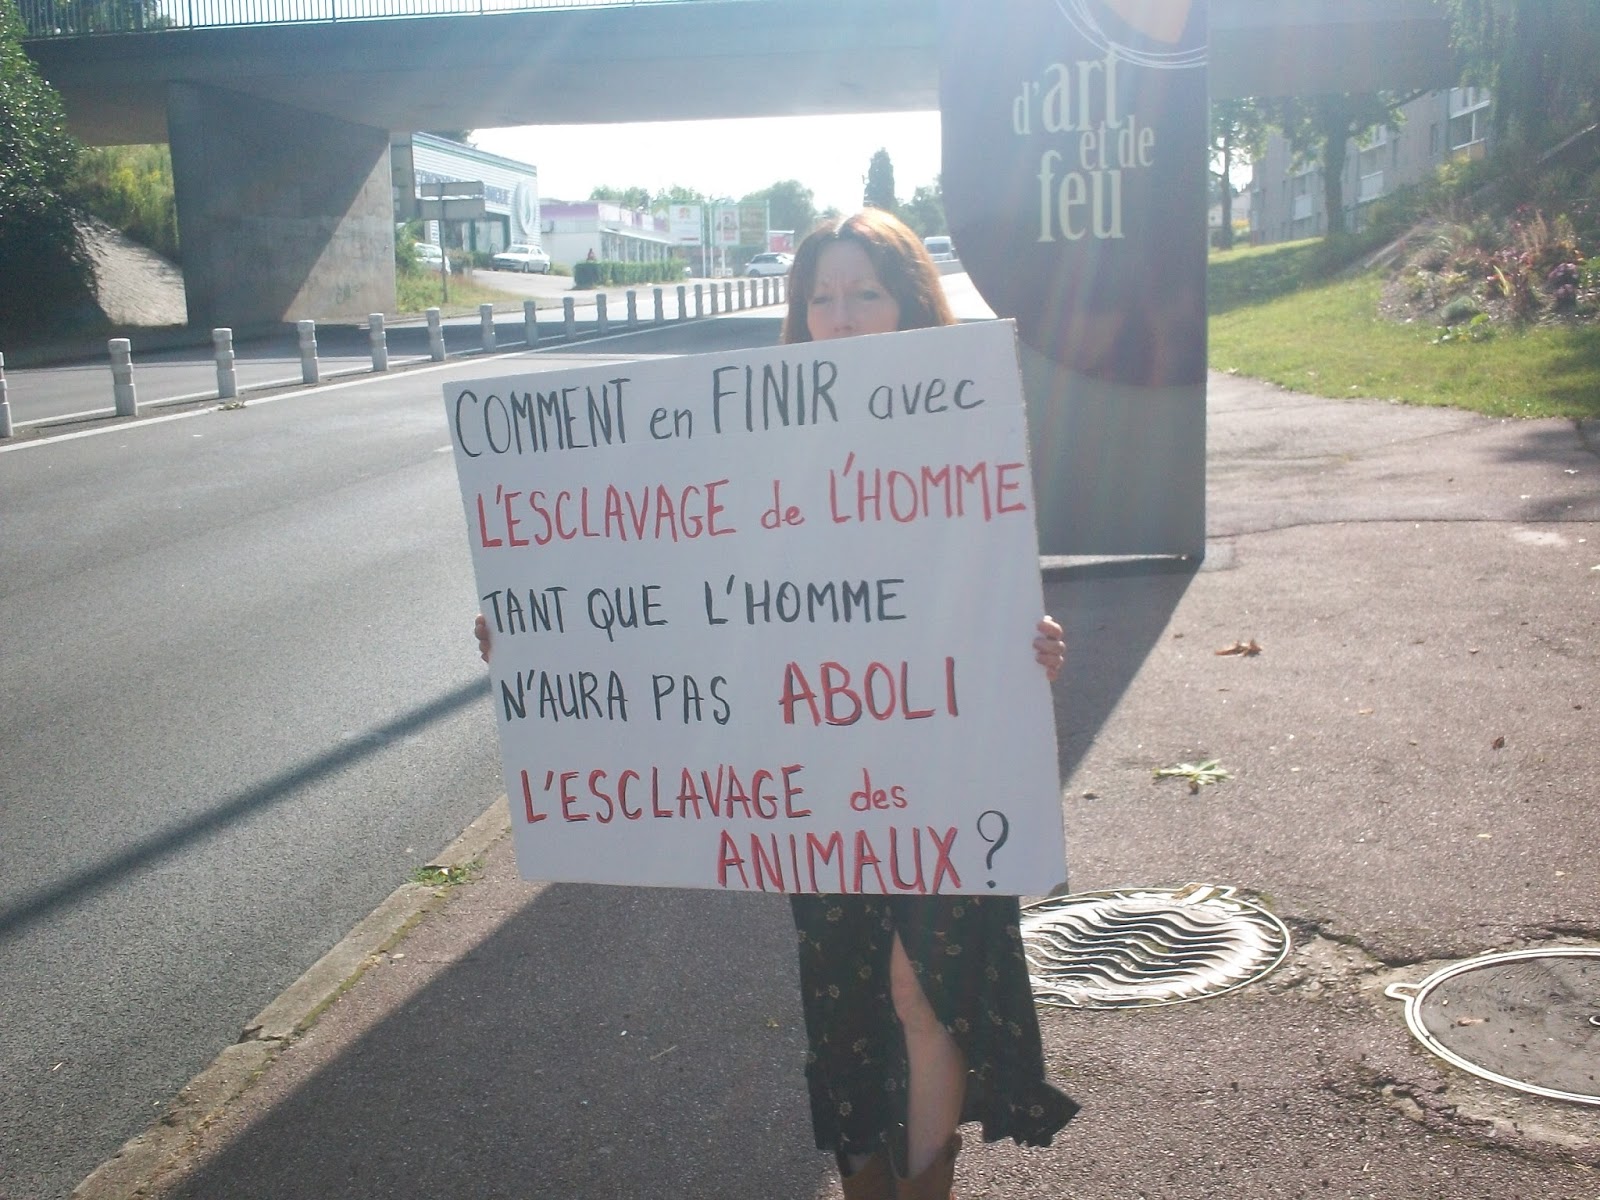 d'art
et de
feu
COMMENT en FINIR avec
L'ESCLAVAGE de L'HOMME
TANT QUE L'HOMME
N'AURA PAS ABOLI
L'ESCLAVAGE des
ANIMAUX?